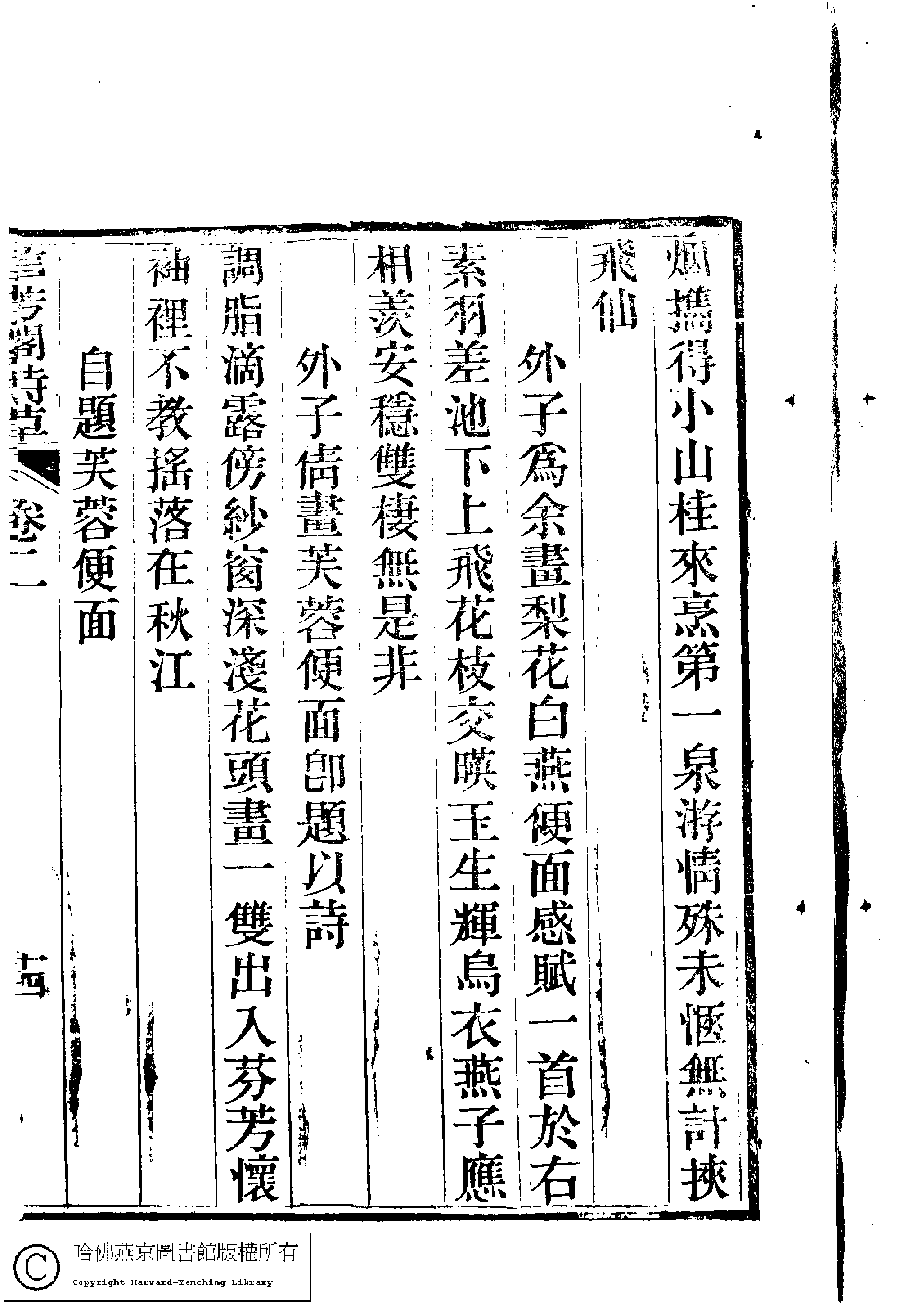 烟攜得小山桂來烹第一泉游情殊未愜無計挾
飛仙
外子爲余畫梨花白燕便面感賦一首於右
素羽差池下上飛花枝交暎玉生輝烏衣燕子應
相羨安穩雙棲無是非
外子倩畫芙蓉便面卽題以詩
調脂滴露傍紗窗深淺花頭畫一雙出入芬芳懷
袖裡不教搖落在秋江
自題芙蓉便面
芳閣詩草 卷二 十四
哈佛燕京圖書館版權所有
Copyright Harvard-Yenching Library